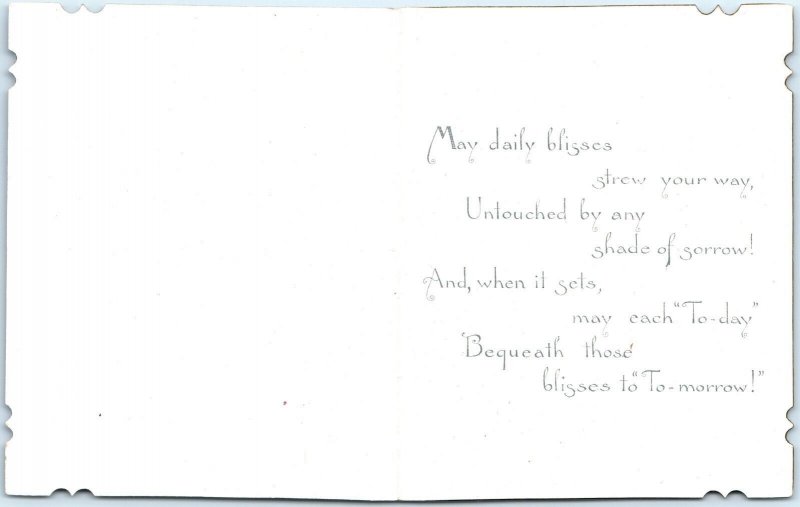 May daily blisses
strew your way,
Untouched by any
shade of sorrow!
And, when it sets,
may each "To-day"
Bequeath those
blisses to "To-morrow!"